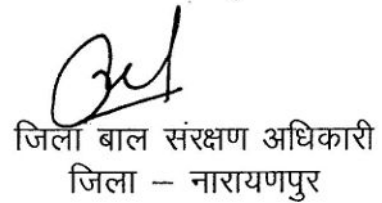 जिला बाल संरक्षण अधिकारी
जिला – नारायणपुर